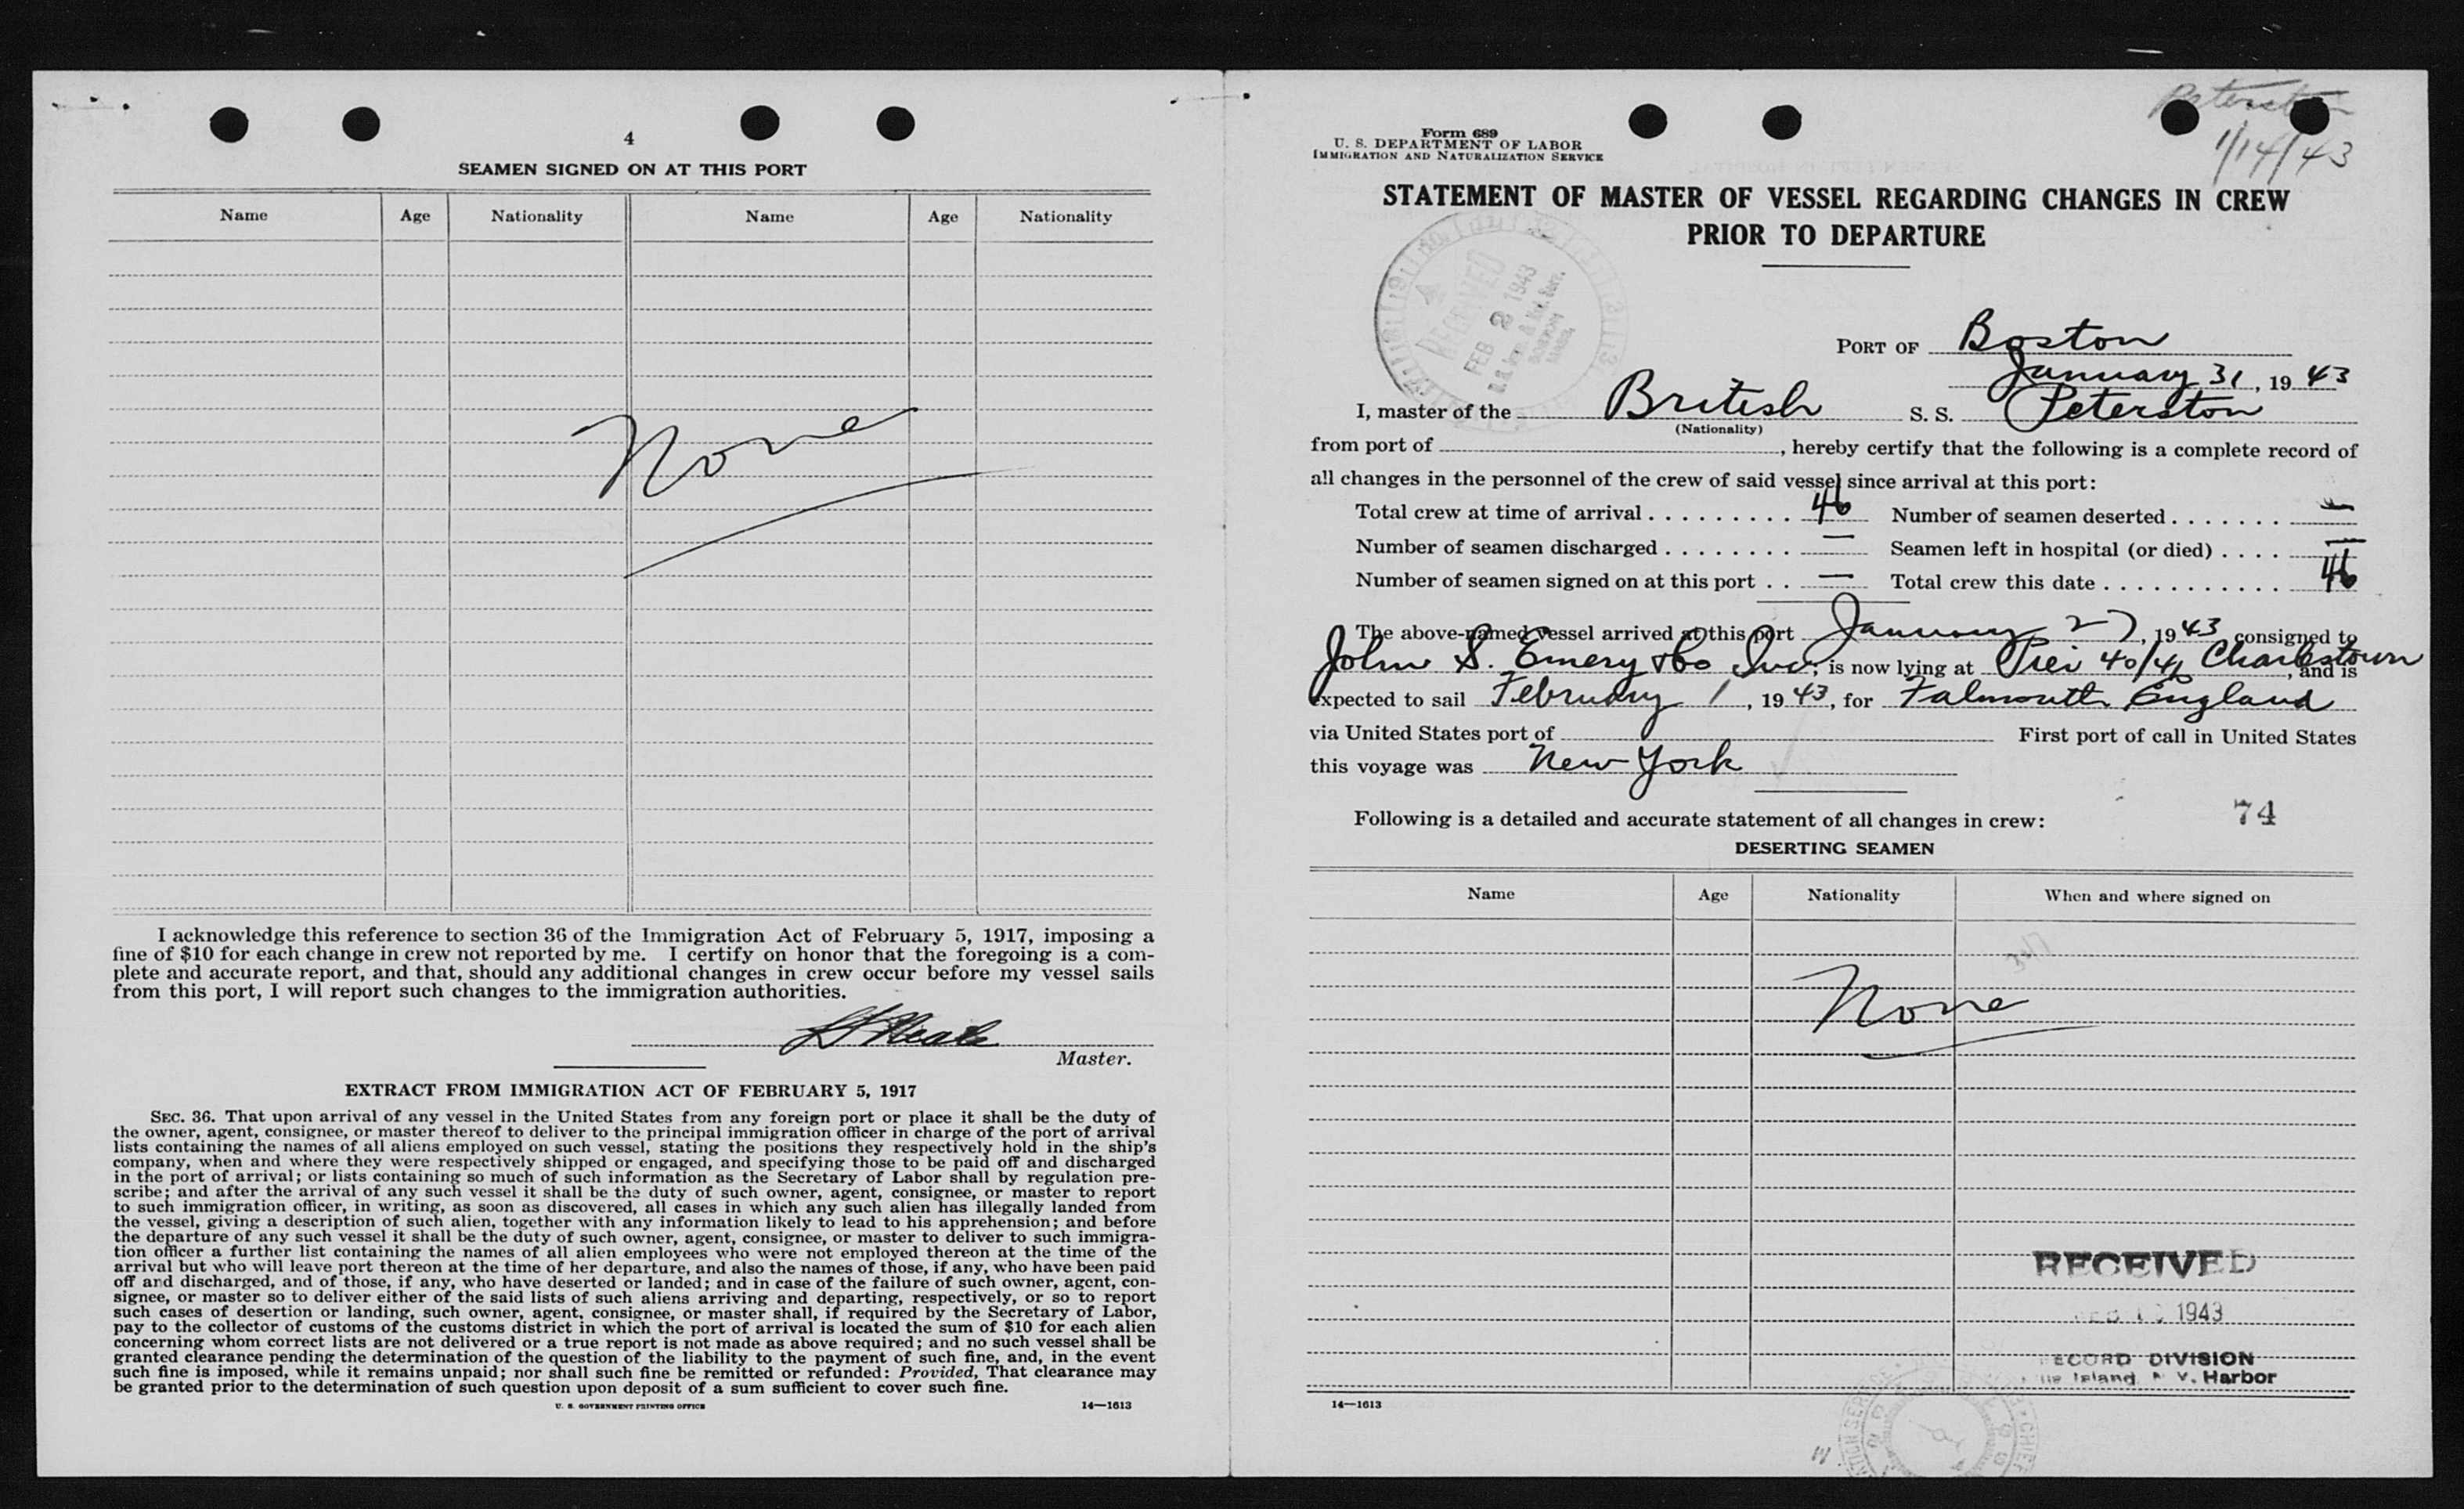 4
SEAMEN SIGNED ON AT THIS PORT
Name Age Nationality Name Age Nationality
None
I acknowledge this reference to section 36 of the Immigration Act of February 5, 1917, imposing a
fine of $10 for each change in crew not reported by me. I certify on honor that the foregoing is a com-
plete and accurate report, and that, should any additional changes in crew occur before my vessel sails
from this port, I will report such changes to the immigration authorities.
Master.
EXTRACT FROM IMMIGRATION ACT OF FEBRUARY 5, 1917
SEC. 36. That upon arrival of any vessel in the United States from any foreign port or place it shall be the duty of
the owner, agent, consignee, or master thereof to deliver to the principal immigration officer in charge of the port of arrival
lists containing the names of all aliens employed on such vessel, stating the positions they respectively hold in the ship's
company, when and where they were respectively shipped or engaged, and specifying those to be paid off and discharged
in the port of arrival; or lists containing so much of such information as the Secretary of Labor shall by regulation pre-
scribe; and after the arrival of any such vessel it shall be the duty of such owner, agent, consignee, or master to report
to such immigration officer, in writing, as soon as discovered, all cases in which any such alien has illegally landed from
the vessel, giving a description of such alien, together with any information likely to lead to his apprehension; and before
the departure of any such vessel it shall be the duty of such owner, agent, consignee, or master to deliver to such immigra-
tion officer a further list containing the names of all alien employees who were not employed thereon at the time of the
arrival but who will leave port thereon at the time of her departure, and also the names of those, if any, who have been paid
off and discharged, and of those, if any, who have deserted or landed; and in case of the failure of such owner, agent, con-
signee, or master so to deliver either of the said lists of such aliens arriving and departing, respectively, or so to report
such cases of desertion or landing, such owner, agent, consignee, or master shall, if required by the Secretary of Labor,
pay to the collector of customs of the customs district in which the port of arrival is located the sum of $10 for each alien
concerning whom correct lists are not delivered or a true report is not made as above required; and no such vessel shall be
granted clearance pending the determination of the question of the liability to the payment of such fine, and, in the event
such fine is imposed, while it remains unpaid; nor shall such fine be remitted or refunded: Provided, That clearance may
be granted prior to the determination of such question upon deposit of a sum sufficient to cover such fine.
U. S. GOVERNMENT PRINTING OFFICE 14—1613
Peterston
1/14/43
Form 689
U. S. DEPARTMENT OF LABOR
IMMIGRATION AND NATURALIZATION SERVICE
STATEMENT OF MASTER OF VESSEL REGARDING CHANGES IN CREW
PRIOR TO DEPARTURE
RECEIVED
FEB 2 1943
PORT OF Boston
January 31, 1943
I, master of the British S. S. Peterston
(Nationality)
from port of , hereby certify that the following is a complete record of
all changes in the personnel of the crew of said vessel since arrival at this port:
Total crew at time of arrival 46 Number of seamen deserted —
Number of seamen discharged — Seamen left in hospital (or died) —
Number of seamen signed on at this port — Total crew this date 46
The above-named vessel arrived at this port January 27, 1943 consigned to
John S. Emery & Co Inc; is now lying at Pier 40/41 Charlestown, and is
expected to sail February 1, 1943, for Falmouth England
via United States port of First port of call in United States
this voyage was New York
Following is a detailed and accurate statement of all changes in crew: 74
DESERTING SEAMEN
Name Age Nationality When and where signed on
None
RECEIVED
1943
RECORD DIVISION
Island N. Y. Harbor
14—1613